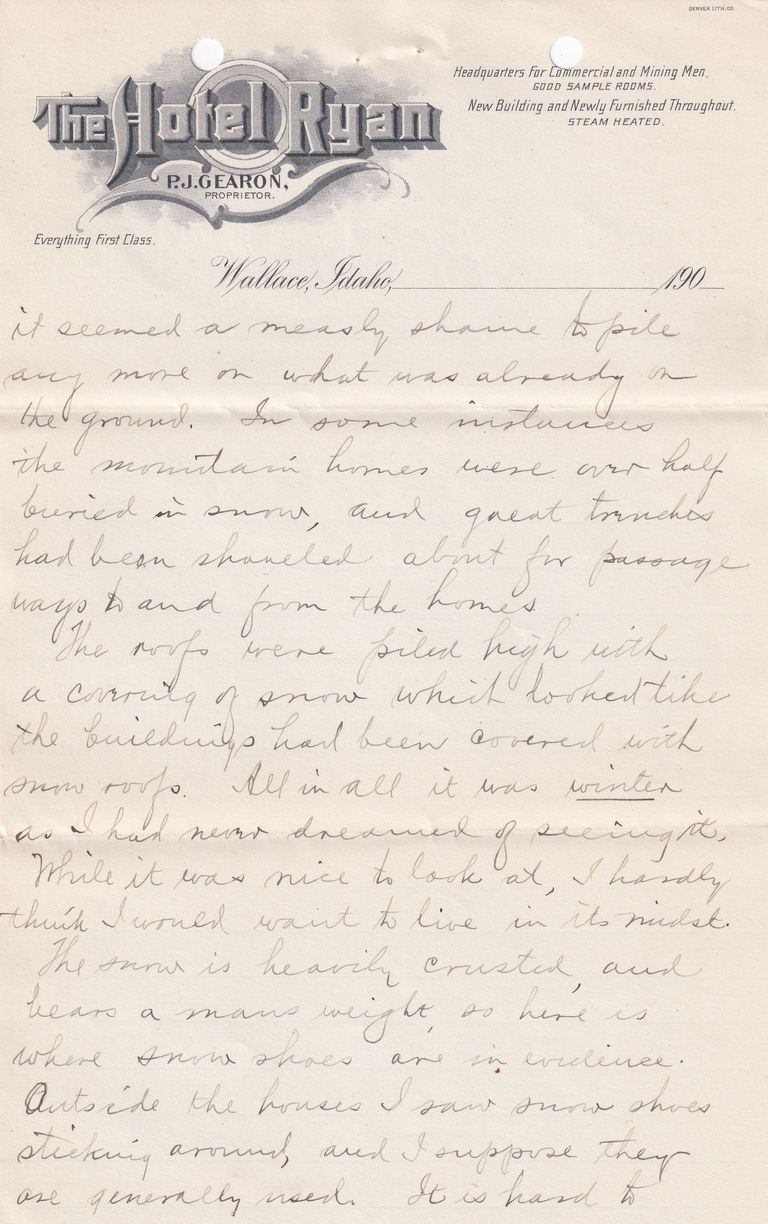 DENVER LITH. CO.
The Hotel Ryan
P.J. GEARON,
PROPRIETOR.
Headquarters For Commercial and Mining Men,
GOOD SAMPLE ROOMS.
New Building and Newly Furnished Throughout.
STEAM HEATED.
Everything First Class.
Wallace, Idaho, 190
it seemed a measly shame to pile
any more on what was already on
the ground. In some instances
the mountain homes were over half
buried in snow, and great trenches
had been shoveled about for passage
ways to and from the homes
The roofs were piled high with
a covering of snow which looked like
the buildings had been covered with
snow roofs. All in all it was winter
as I had never dreamed of seeing it.
While it was nice to look at, I hardly
think I would want to live in its midst.
The snow is heavily crusted, and
bears a mans weight, so here is
where snow shoes are in evidence.
Outside the houses I saw snow shoes
sticking around, and I suppose they
are generally used. It is hard to